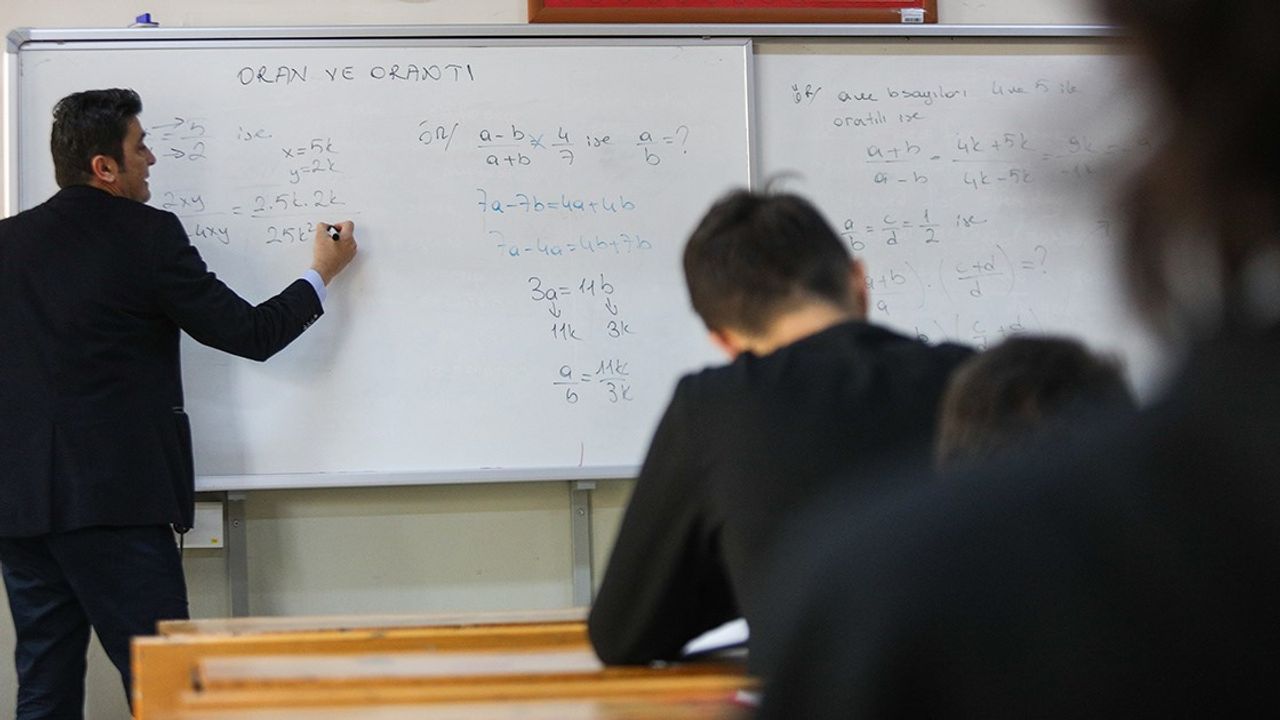 ORAN VE ORANTI
= 5/2 ise
x=5k
y=2k
2xy = 2.5k.2k
4xy 25k²
ÖR/ a-b/a+b 4/7 ise a/b =?
7a-7b=4a+4b
7a-4a=4b+7b
3a=11b
11k 3k
a/b = 11k/3k
ÖR/ a ve b sayıları 4 ve 5 ile
orantılı ise
a+b/a-b = 4k+5k/4k-5k = 9k
a/b = c/d = 1/2 ise
(a+b/a).(c+d/d)=?